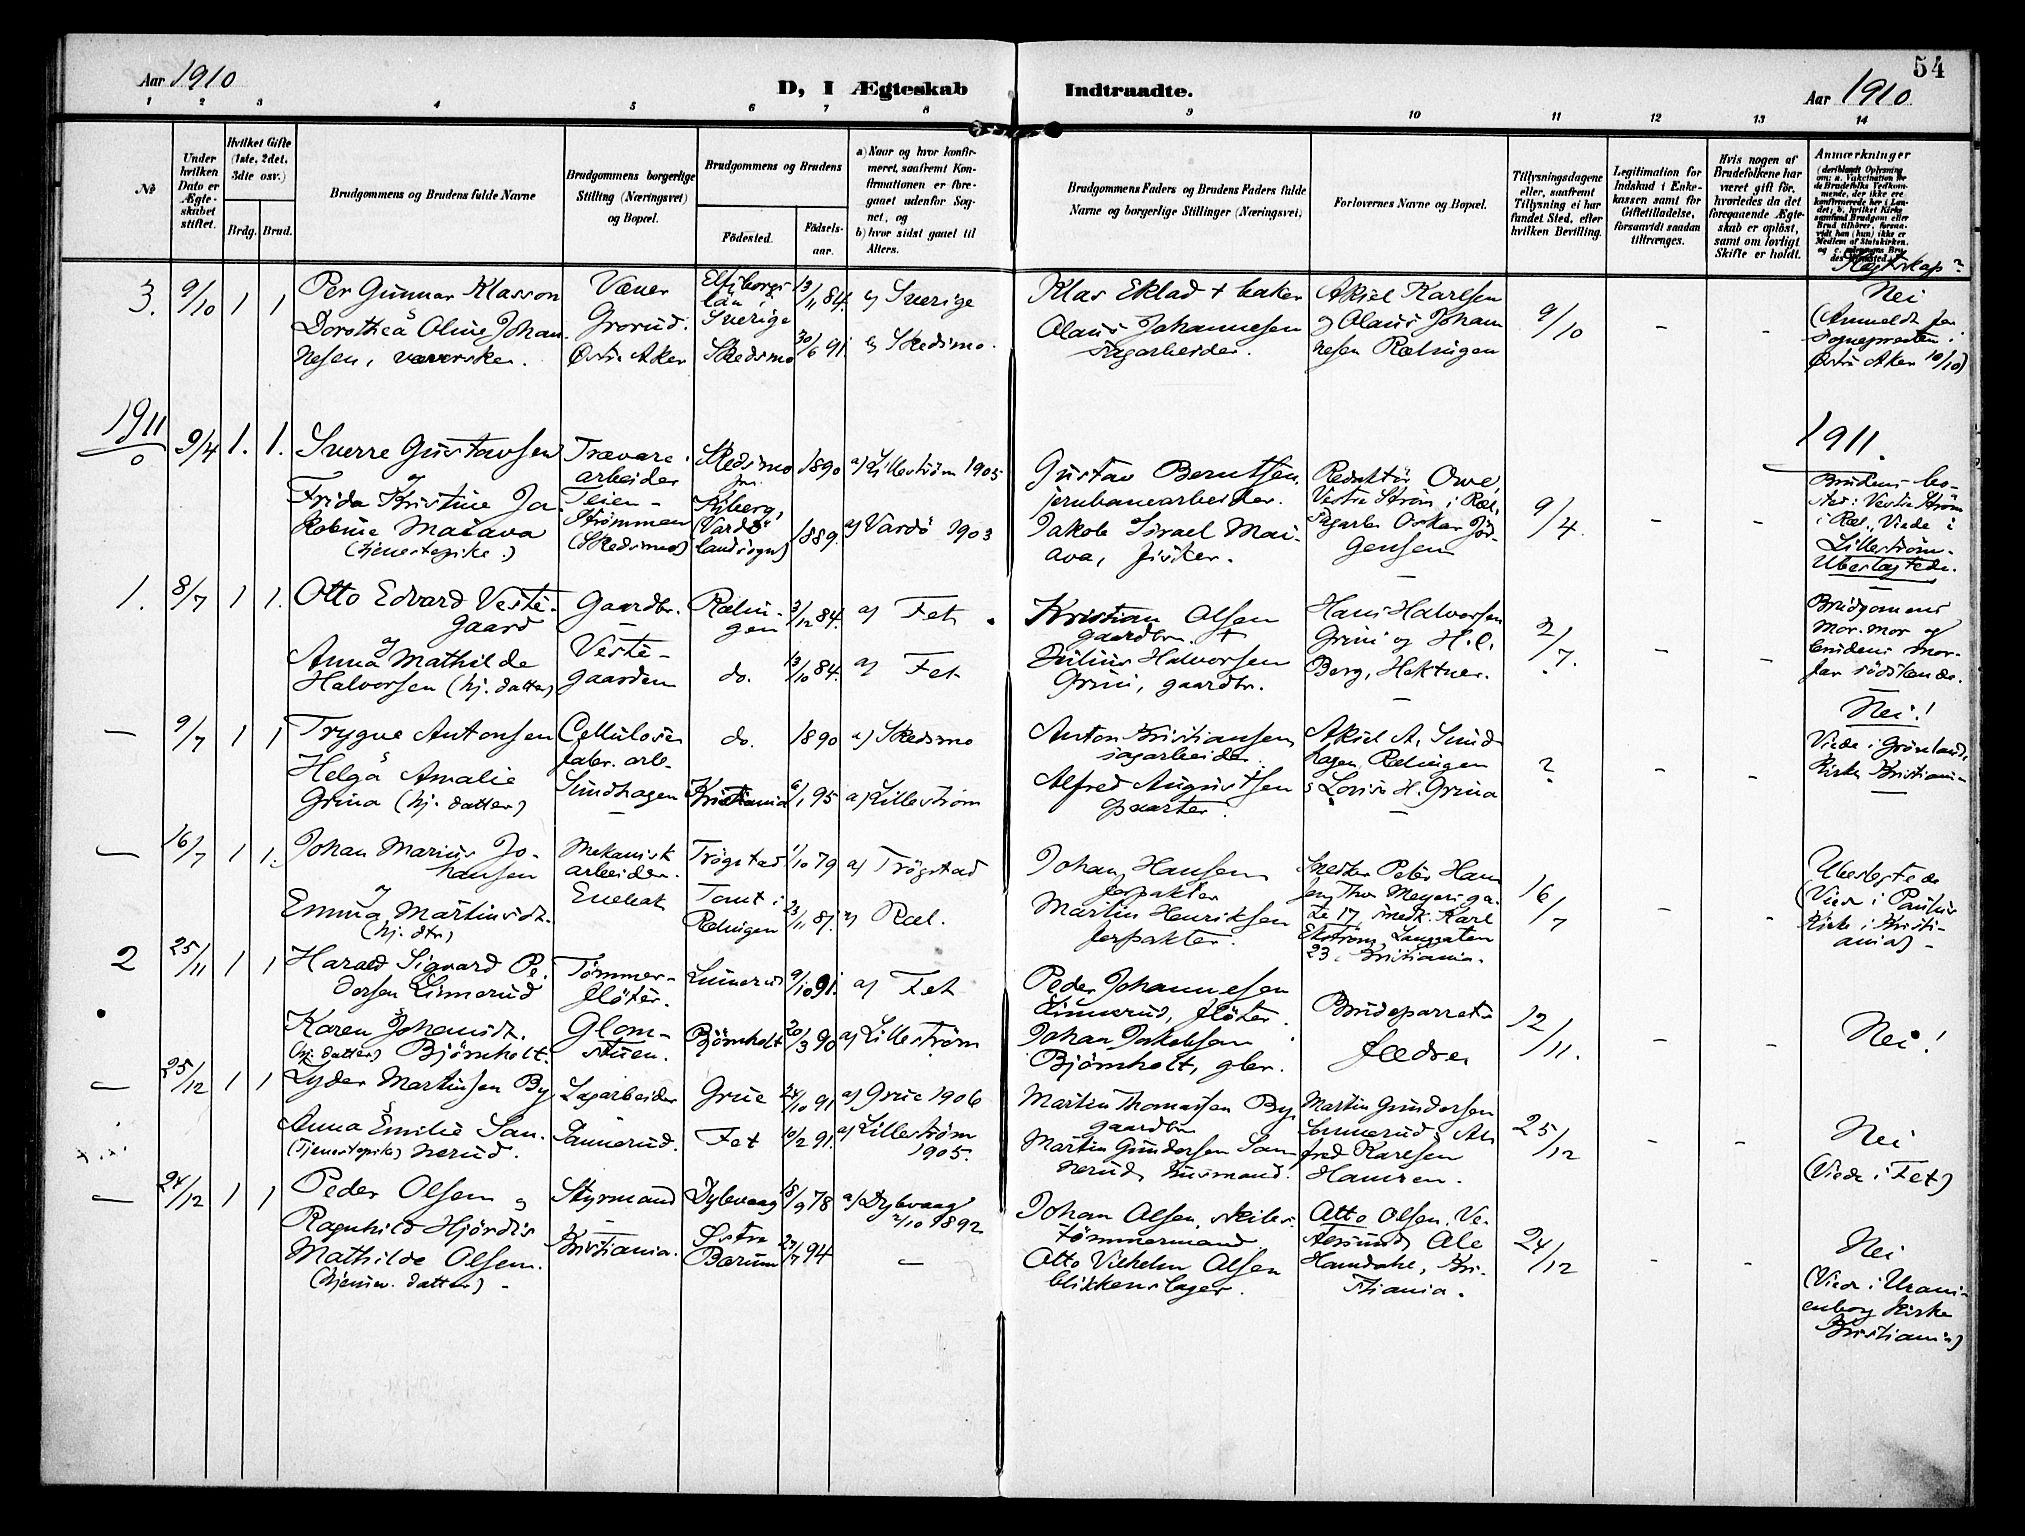 54
Aar 1910
D, I Ægteskab Indtraadte.
Aar 1910
1 2 3 4 5 6 7 8 9 10 11 12 13 14
No
Under hvilken Dato er Ægteskabet stiftet.
Hvilket Gifte (1ste, 2det, 3die osv.)
Brdg. Brud.
Brudgommens og Brudens fulde Navne
Brudgommens borgerlige Stilling (Næringsvei) og Bopæl.
Brudgommens og Brudens
Födested.
Födsels-aar.
a) Naar og hvor konfirmeret, saafremt Konfirmationen er foregaaet udenfor Sognet, og
b) hvor sidst gaaet til Alters.
Brudgommens Faders og Brudens Faders fulde Navne og borgerlige Stillinger (Næringsvei)
Forlovernes Navne og Bopæl.
Tillysningsdagene eller, saafremt Tillysning ei har fundet Sted, efter hvilken Bevilling.
Legitimation for Indskud i Enkekassen samt for Giftetilladelse, forsaavidt saadan tiltrænges.
Hvis nogen af Brudefolkene har været gift för, hvorledes da det foregaaende Ægteskab er oplöst, samt om lovligt Skifte er holdt.
Anmærkninger
Slegtskap?
3. 9/10 1 1 Per Gunnar Klasson Væver Elfsborgs län i Sverige 13/11 84. a) Sverige Klas Eklad + baker Aksel Karlsen 9/10 - - Nei
Dorothea Oline Johannesen, væverske. Grorud. Østre Aker Skedsmo 30/6 91. a) Skedsmo. Olaus Johannesen sagarbeider. og Olaus Johannesen Rælingen (Anmeldt for Sognepresten i Østre Aker 10/10)
1911
1911.
0 9/4 1. 1. Sverre Gustavsen Trævarearbeider Skedsmo 1890 a) Lillestrøm 1905 Gustav Berntsen, jernbanearbeider. Redaktör Owe, Vestre Ström i Ræl. 9/4 - - Brudens bosted: Vestre Ström i Ræl. Viede i Lillestrøm.
og Frida Kristine Jakobine Maiava (tjenestepike.) Teien - Strömmen (Skedsmo) Kyberg, (Vardö landsogn) 1889. a) Vardö 1903 Jakob Israel Maiava, fisker. Sagarb. Oskar Jörgensen Ubeslegtede.
1. 8/7 1 1. Otto Edvard Vestegaard Gaardbr. Rælingen 3/12 84. a) Fet Kristian Olsen gaardbr. + Hans Halvorsen Grini og H. O. Berg, Hektner. 2/7. - - Brudgomens mor.mor og brudens morfar södskende.
og Anna Mathilde Halvorsen (hj. datter) Vestegaarden do. 13/10 84. a) Fet Julius Halvorsen Grini, gaardbr.
- 9/7 1 1 Trygve Antonsen Cellulosefabr. arb. do. 1890 a) Skedsmo Anton Kristiansen, sagarbeider. Aksel A. Sundhagen, Rælingen ? - - Nei!
Helga Amalie Grina (hj. datter) Sundhagen Kristiania 6/1 95 a) Lillestrøm Alfred Augustsen + & Lovise H. Grina Viede i Grönlands Kirke Kristiania -
- 16/7 1 1. Johan Marius Johansen Mekanisk arbeider. Trögstad 1/10 79 a) Trögstad Johan Hansen forpakter Snedker Peter Hansen, Thor Meyers ga. 16/7 - - Ubeslegtede
og Emma Martinsdt. (hj. dtr.) Enebak Tomt i Rælingen 23/11 87. a) Ræl. Martin Henriksen forpakter. 17, smed. Karl Ekström, Langgaten 23. Kristiania. (Viede i Paulus Kirke i Kristiania) -
2 25/11 1 1 Harald Sigvard Pedersen Linnerud Tømmerflöter. Linnerud 9/10 91. a) Fet Peder Johannesen Linnerud, flöter. Brudeparrets fædre 12/11. - - Nei!
Karen Johansdt. (hj. datter) Björnholt. Glomstuen. Björnholt 20/3 90 a) Lillestrøm Johan Jakobsen Björnholt, gbr.
- 25/12 1 1 Lyder Martinsen By Sagarbeider Grue 24/10 91 a) Grue 1906 Martin Thomassen By, gaardbr. Martin Gundersen 25/12 - - Nei
Anna Emilie Sannerud. (tjenestepike) Sannerud. Fet 10/2 91. a) Lillestrøm 1905. Martin Gundersen Sannerud, husmand. Sannerud, Alfred Karlsen Hansen. (Viede i Fet)
- 24/12 1 1 Peder Olsen og Styrmand Dybvaag 18/9 78 a) Dybvaag 2/10 1892 Johan Olsen, skibstömmermand Otto Olsen, 24/12 - - Nei
Ragnhild Hjördis Mathilde Olsen. (hjemv. datter) - Kristiania. Østre Bærum 27/7 94 - Otto Vilhelm Olsen blikkenslager. Ole Hamdahl, Kristiania. (Viede i Uranienborg Kirke Kristiania)